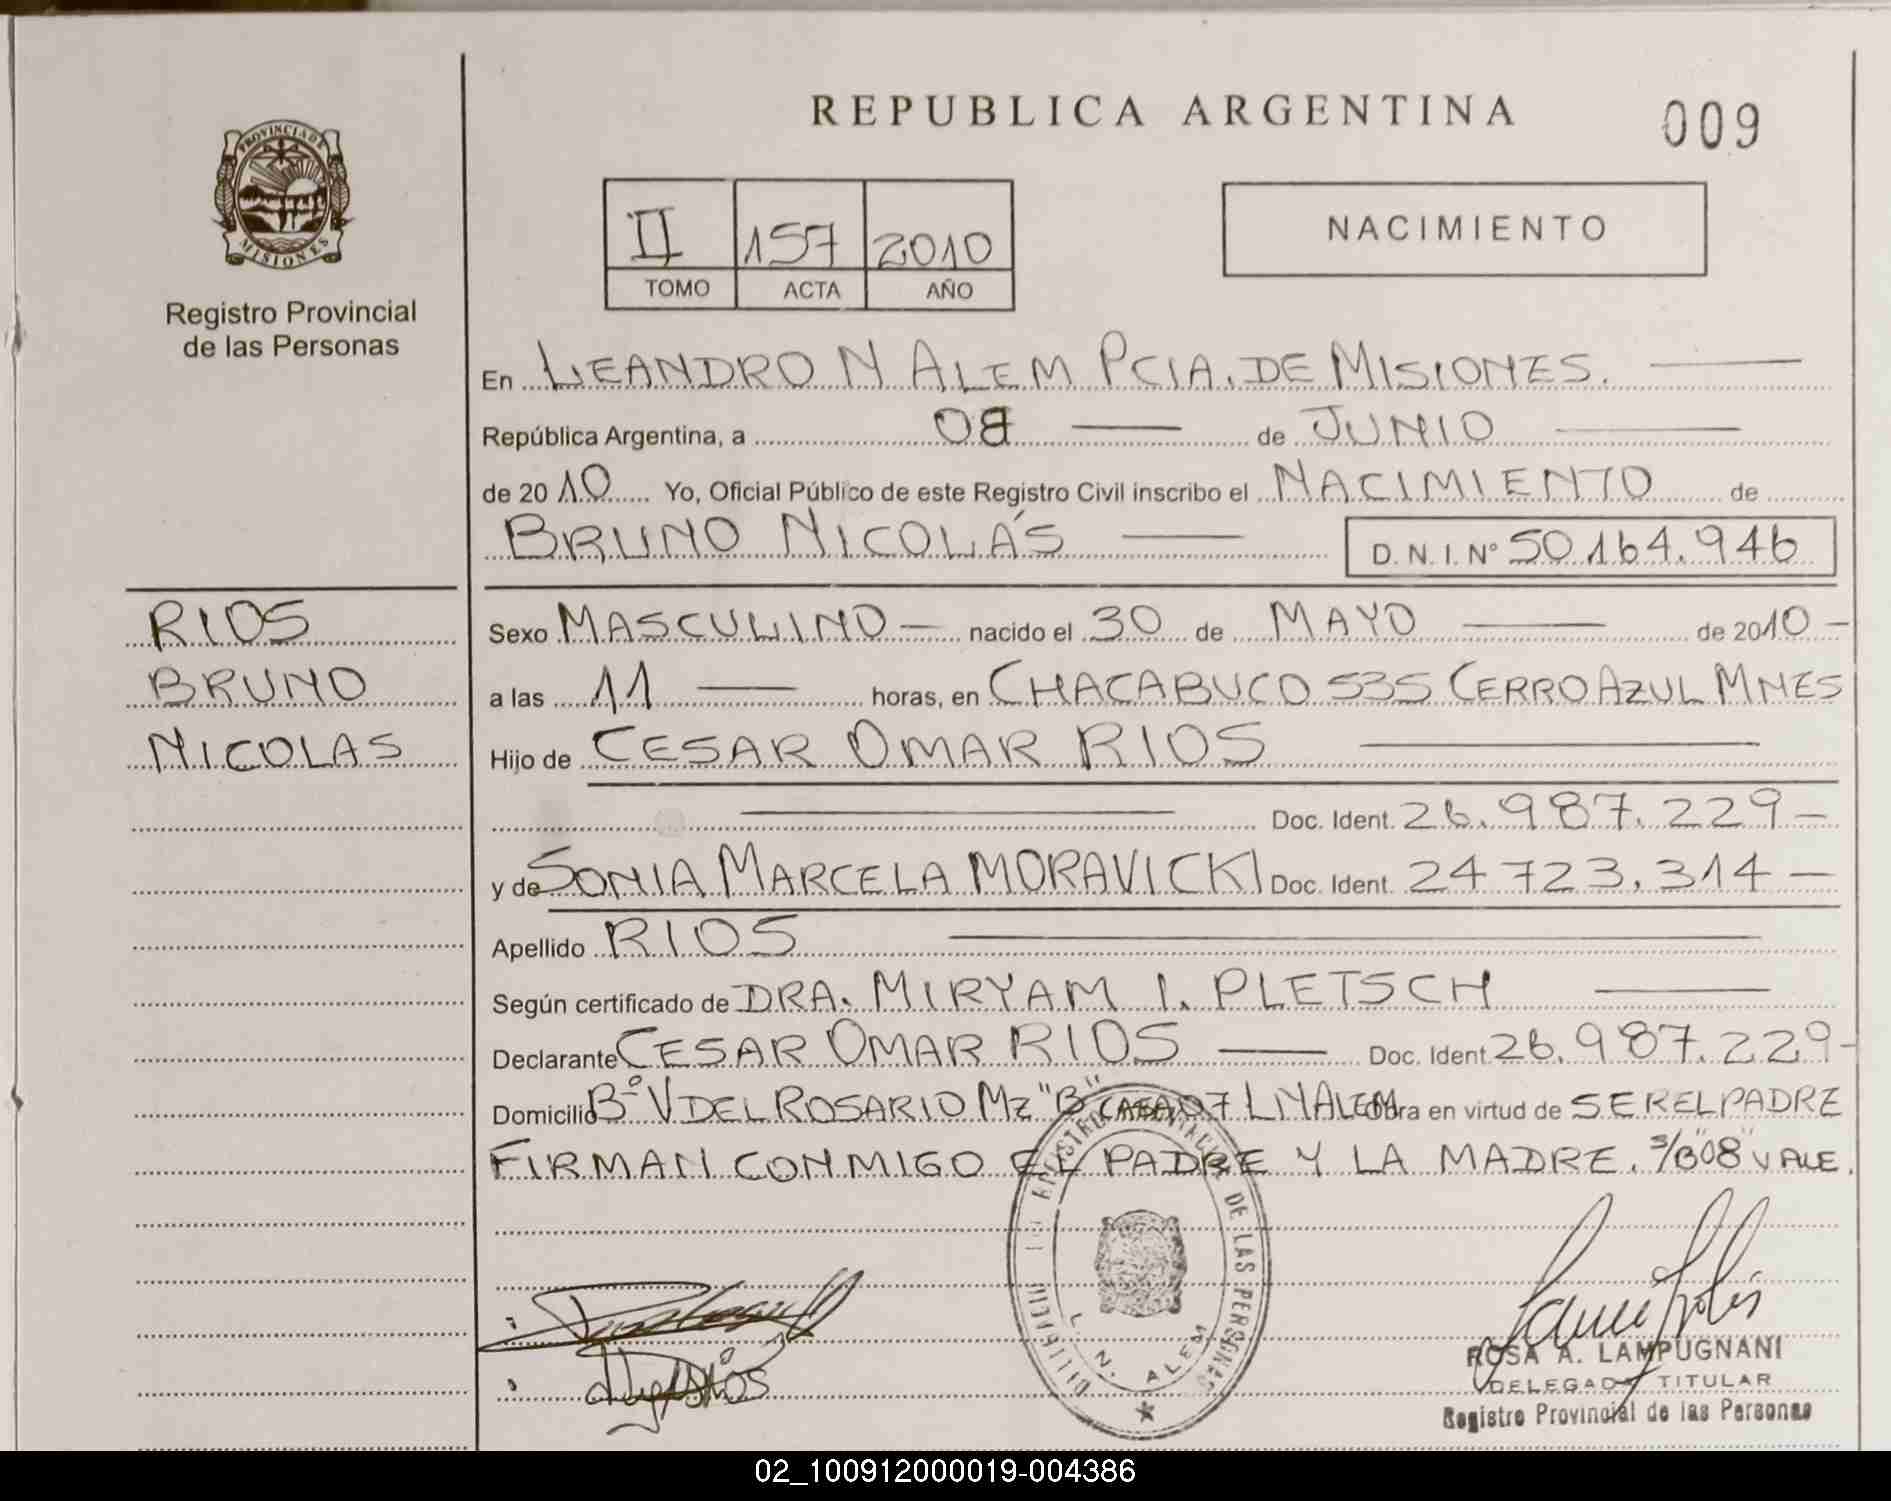 REPUBLICA ARGENTINA
009
PROVINCIA DE
MISIONES
Registro Provincial
de las Personas
II 157 2010
TOMO ACTA AÑO
NACIMIENTO
En LEANDRO N ALEM PCIA. DE MISIONES.
República Argentina, a 08 de JUNIO
de 2010 Yo, Oficial Público de este Registro Civil inscribo el NACIMIENTO de
BRUNO NICOLÁS D. N. I. Nº 50.164.946
RIOS
BRUNO
NICOLAS
Sexo MASCULINO nacido el 30 de MAYO de 2010
a las 11 horas, en CHACABUCO 535 CERRO AZUL MNES
Hijo de CESAR OMAR RIOS
Doc. Ident. 26.987.229
y de SONIA MARCELA MORAVICKI Doc. Ident. 24.723.314
Apellido RIOS
Según certificado de DRA. MIRYAM I. PLETSCH
Declarante CESAR OMAR RIOS Doc. Ident. 26.987.229
Domicilio Bº V DEL ROSARIO Mz "B" CASA 07 LNALEM Obra en virtud de SER EL PADRE
FIRMAN CONMIGO EL PADRE Y LA MADRE. S/B "08" VALE.
DE LAS PERSONAS
L. N. ALEM
ROSA A. LAMPUGNANI
DELEGADA TITULAR
Registro Provincial de las Personas
02_100912000019-004386